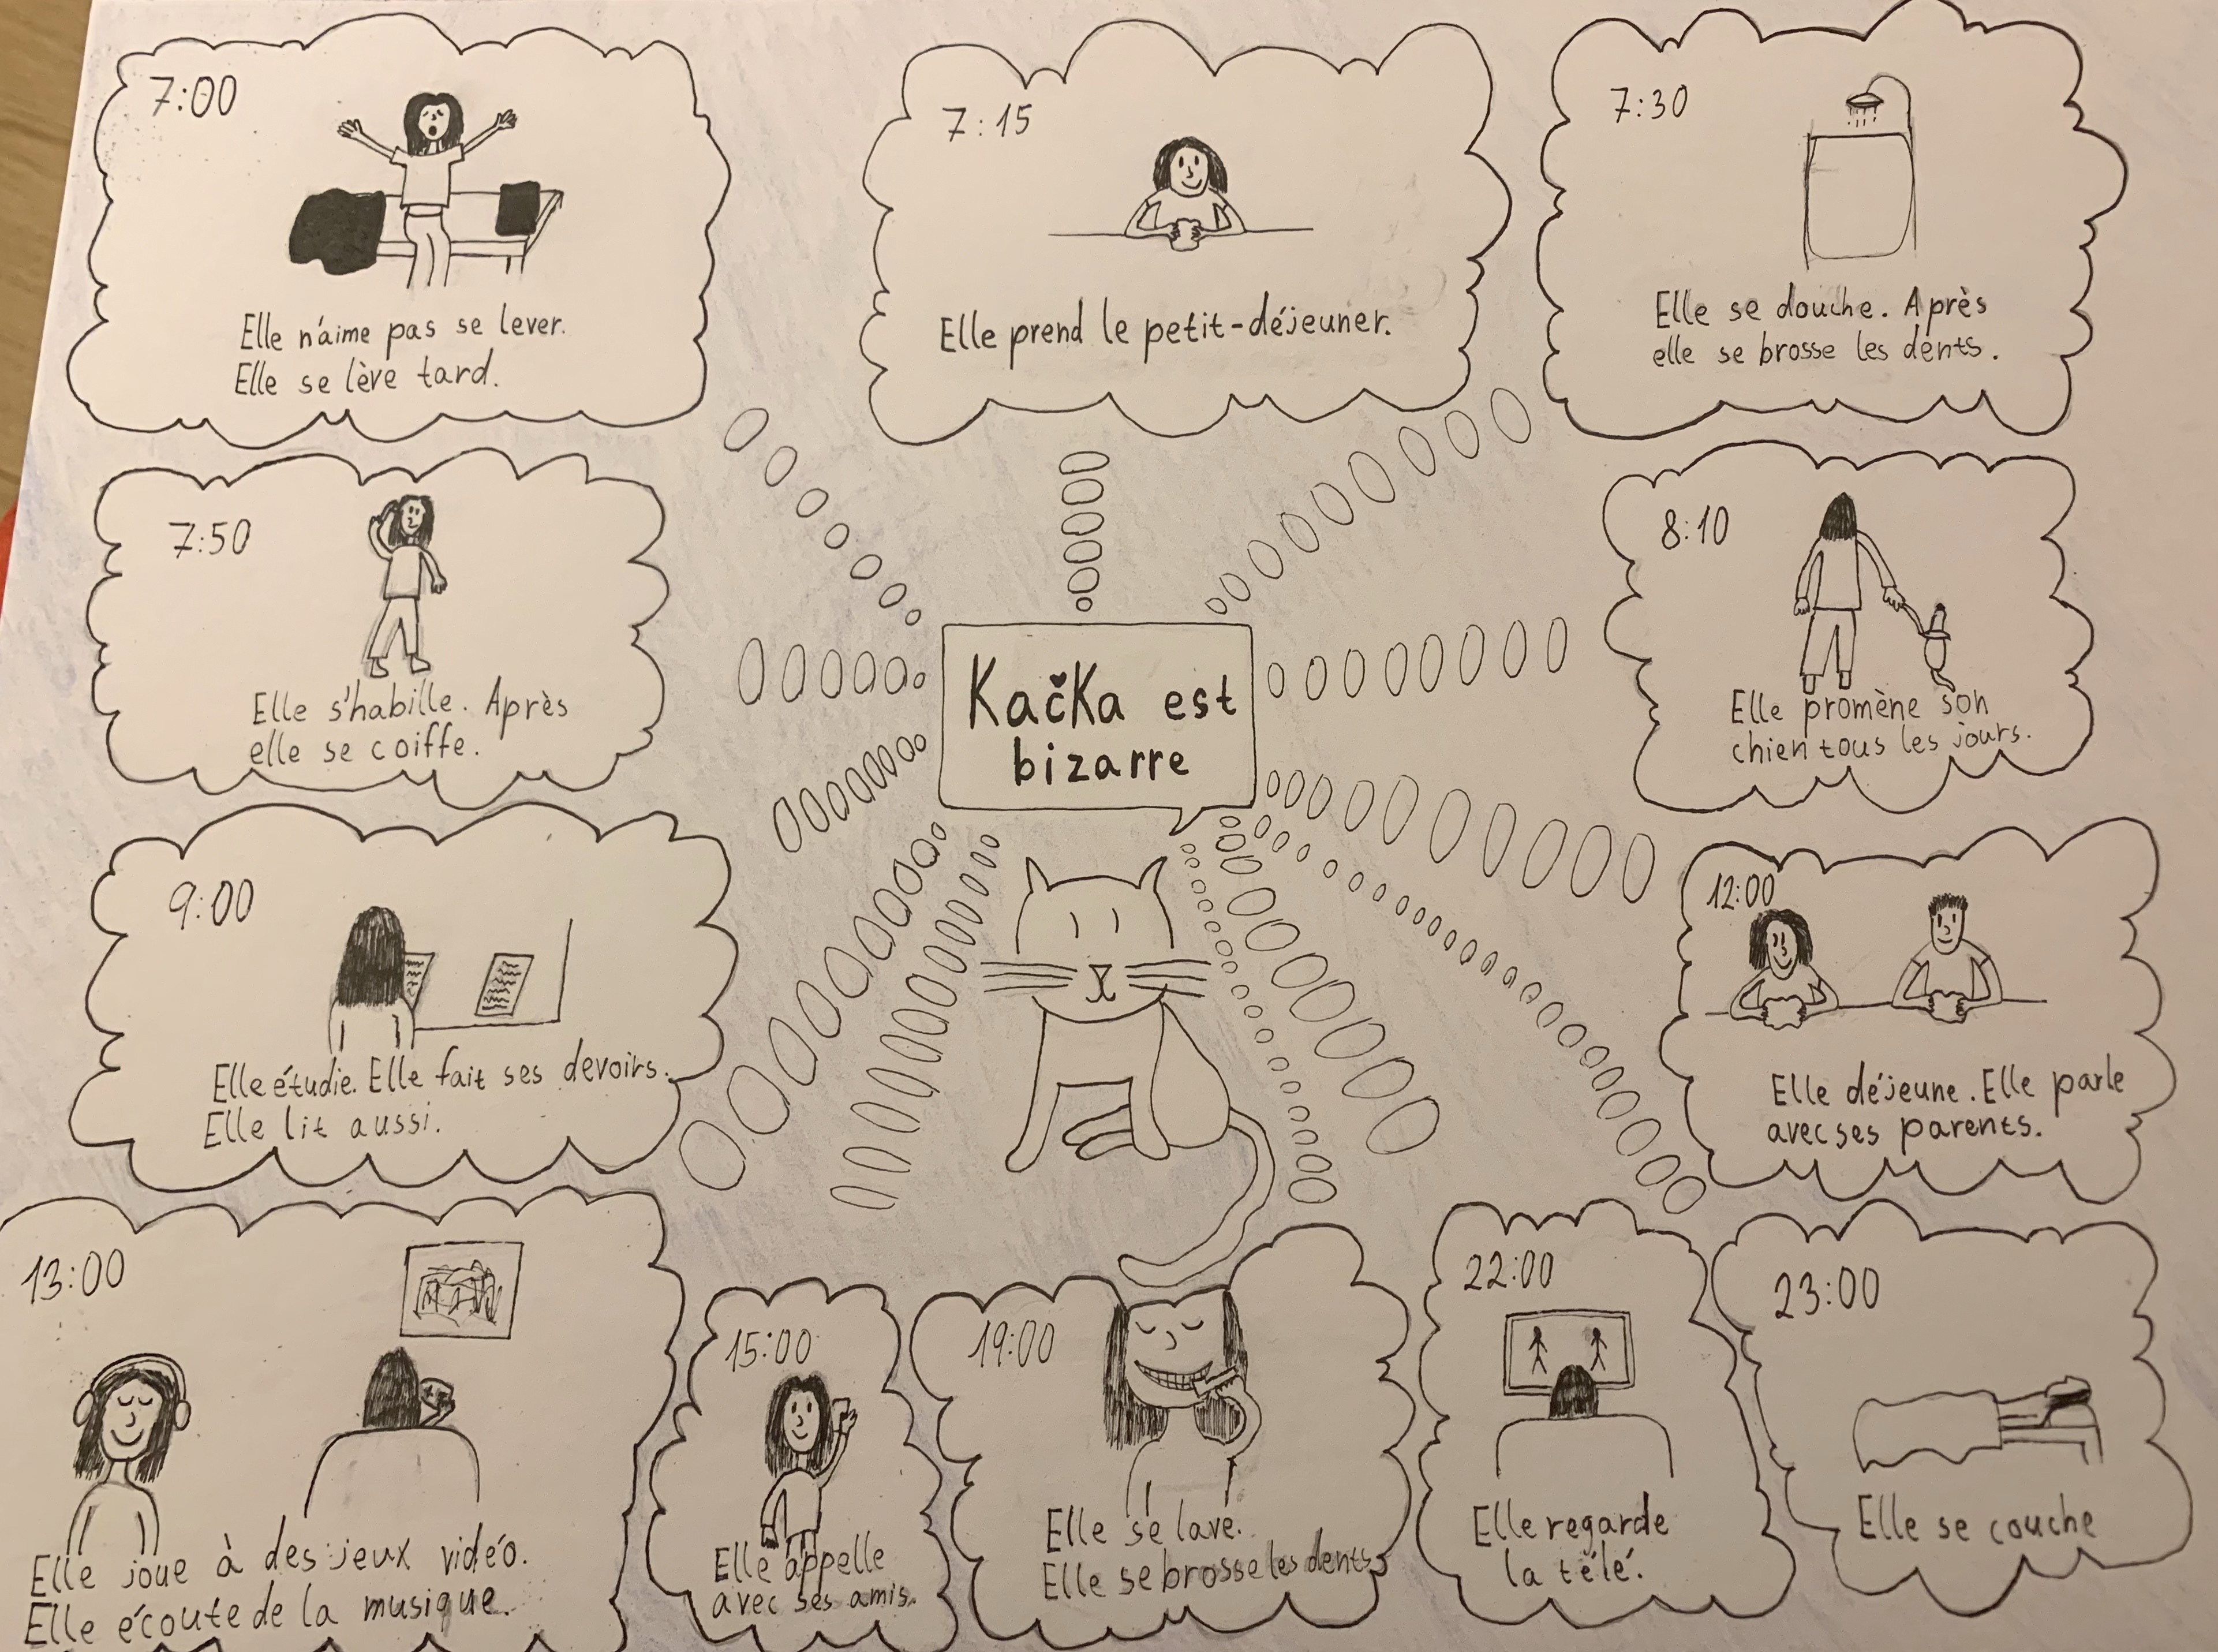 7:00
Elle n'aime pas se lever.
Elle se lève tard.
7:15
Elle prend le petit-déjeuner.
7:30
Elle se douche. Après
elle se brosse les dents.
7:50
Elle s'habille. Après
elle se coiffe.
Kačka est
bizarre
8:10
Elle promène son
chien tous les jours.
9:00
Elle étudie. Elle fait ses devoirs.
Elle lit aussi.
12:00
Elle déjeune. Elle parle
avec ses parents.
13:00
Elle joue à des jeux vidéo.
Elle écoute de la musique.
15:00
Elle appelle
avec ses amis.
19:00
Elle se lave.
Elle se brosse les dents
22:00
Elle regarde
la télé.
23:00
Elle se couche